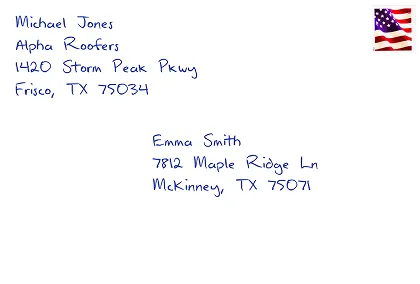 Michael Jones
Alpha Roofers
1420 Storm Peak Pkwy
Frisco, TX 75034
Emma Smith
7812 Maple Ridge Ln
McKinney, TX 75071